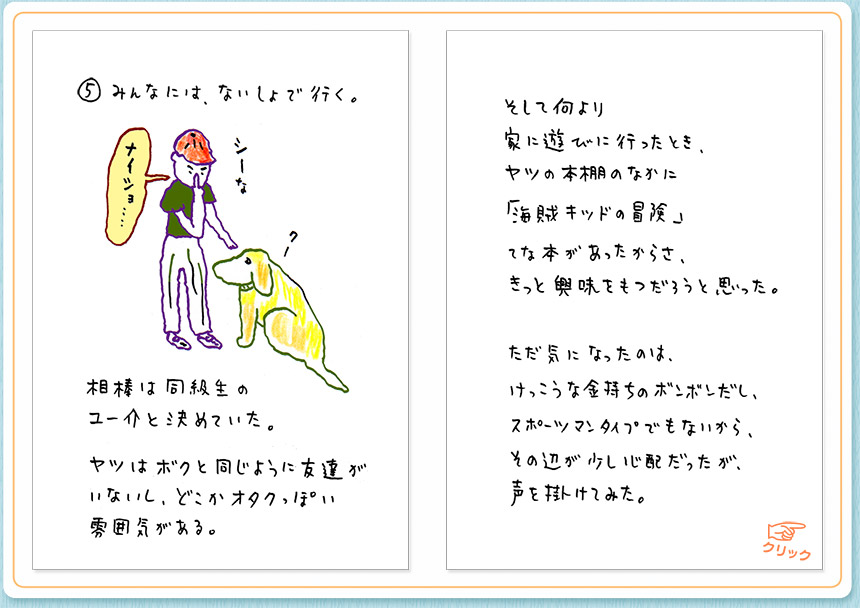 ⑤ みんなには、ないしょで行く。
ナイショ…
シーな
ク
相棒は同級生の
ユー介と決めていた。
ヤツはボクと同じように友達が
いないし、どこかオタクっぽい
雰囲気がある。
そして何より
家に遊びに行ったとき、
ヤツの本棚のなかに
「海賊キッドの冒険」
てな本があったからさ、
きっと興味をもつだろうと思った。
ただ気になったのは、
けっこうな金持ちのボンボンだし、
スポーツマンタイプでもないから、
その辺が少し心配だったが、
声を掛けてみた。
クリック